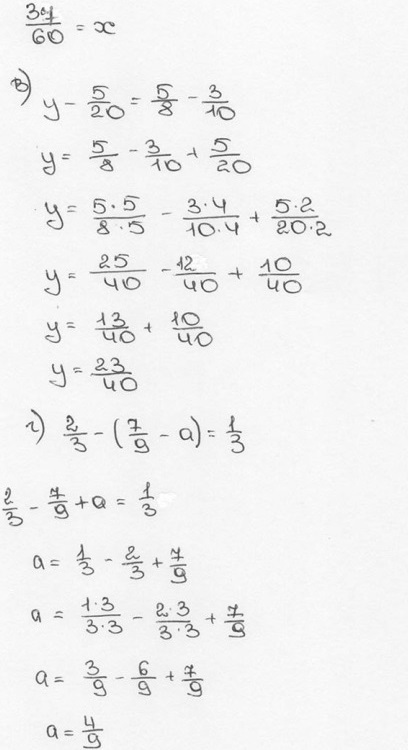 37/60 = x
в) y - 5/20 = 5/8 - 3/10
y = 5/8 - 3/10 + 5/20
y = 5·5/8·5 - 3·4/10·4 + 5·2/20·2
y = 25/40 - 12/40 + 10/40
y = 13/40 + 10/40
y = 23/40
г) 2/3 - (7/9 - a) = 1/3
2/3 - 7/9 + a = 1/3
a = 1/3 - 2/3 + 7/9
a = 1·3/3·3 - 2·3/3·3 + 7/9
a = 3/9 - 6/9 + 7/9
a = 4/9